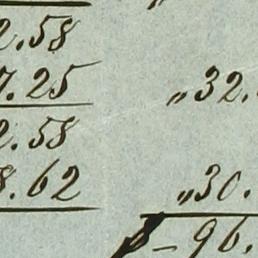 2.58
7.25 „32.
2.58
8.62 „30.
96.